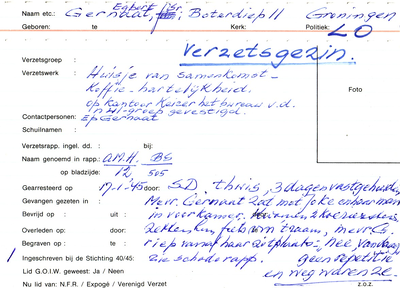 Naam etc.: Gernaat, Egbert Sr., Boterdiep 11 Groningen
Geboren: te Kerk: Politiek: LO
Verzetsgezin.
Verzetsgroep :
Verzetswerk : Huisje van samenkomst -
Koffie - hartelijkheid.
op kantoor Keizer het bureau v.d.
-groep gevestigd.
Contactpersonen: Ep Gernaat
Schuilnamen :
Foto
Verzetsrapp. ingel. dd. : bij:
Naam genoemd in rapp.: A.M.H. BS
op bladzijde: 12, 505
Gearresteerd op 17-1-45 door: S.D. thuis, 3 dagen vastgehouden
Gevangen gezeten in : Mevr. Gernaat zat met Joke en haar man
Bevrijd op : uit : in voorkamer.
Overleden op: door:
Begraven op : te riep vanaf haar zitplaats: Nee, vandaag
Ingeschreven bij de Stichting 40/45: zie schaderapp. geen repetitie
Lid G.O.I.W. geweest: Ja / Neen en weg waren ze.
Nu lid van: N.F.R. / Expogé / Verenigd Verzet z.o.z.